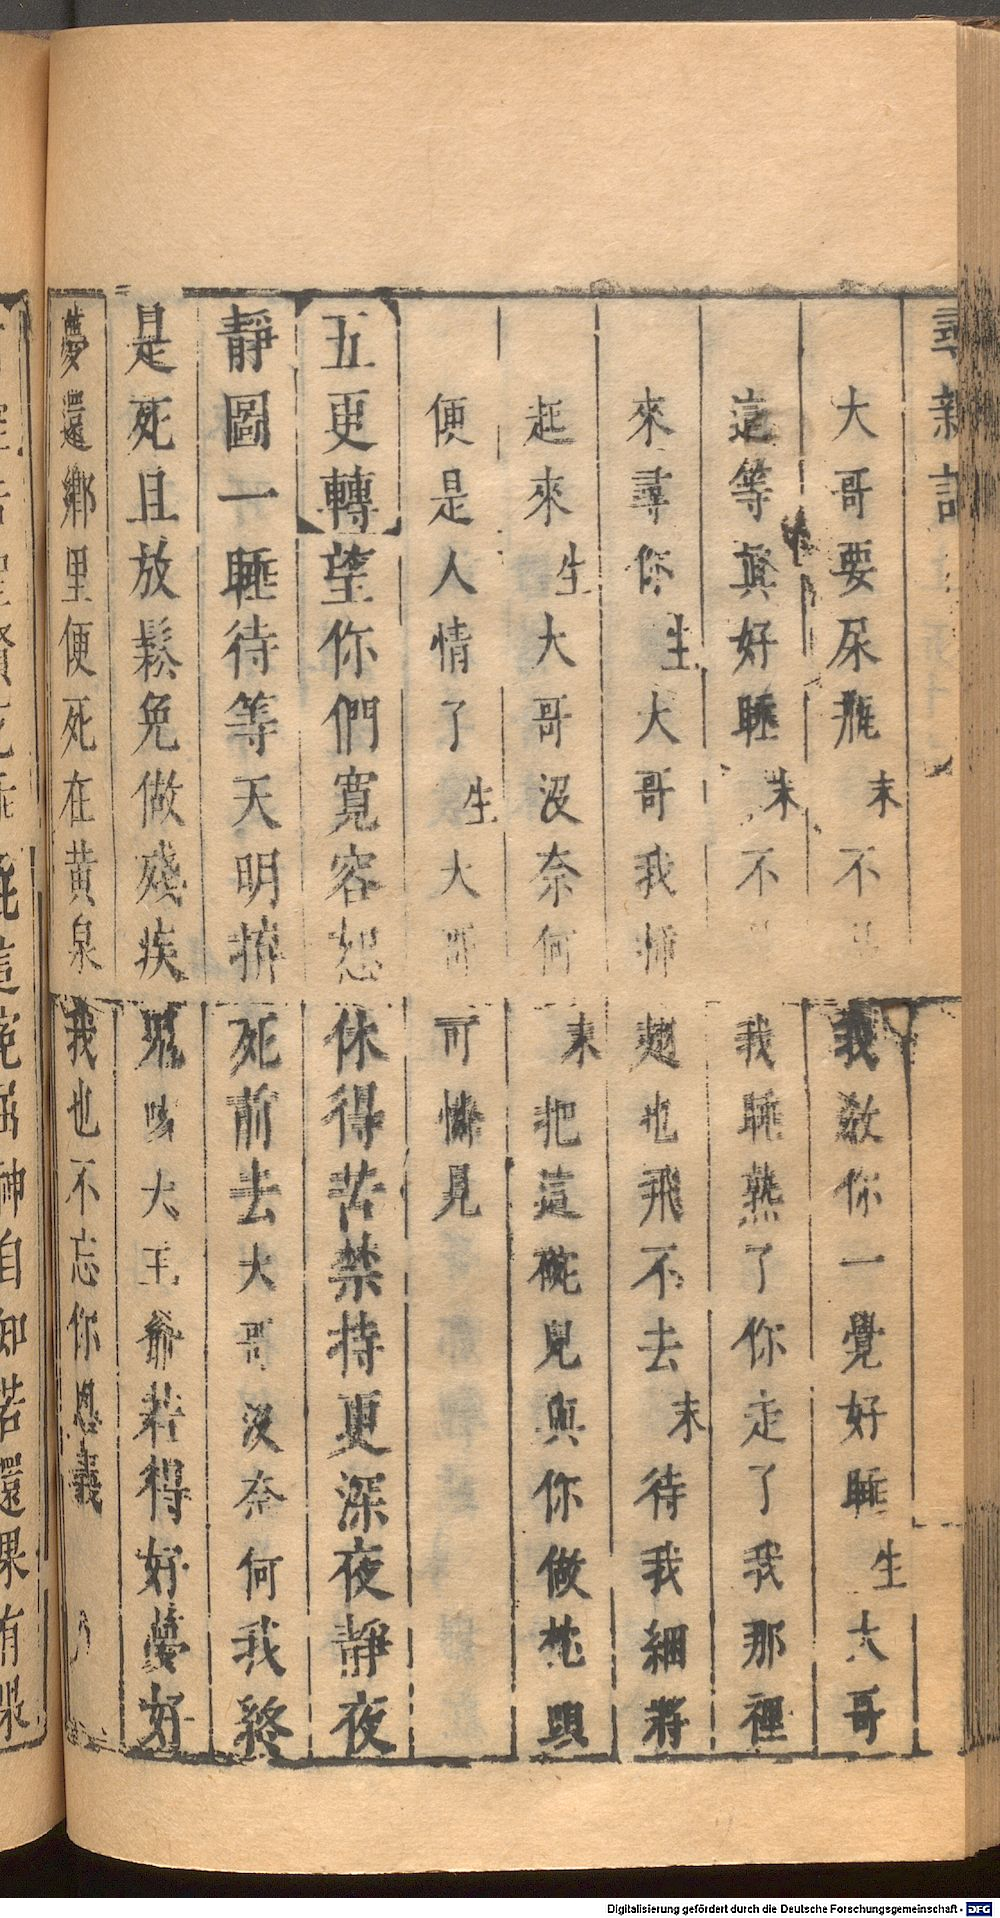 尋親記
大哥要尿瓶末不我教你一覺好睡生大哥
這等眞好睡末不我睡熟了你走了我那裡
來尋你生大哥我揷翅也飛不去末待我綑將
起來生大哥沒奈何末把這碗兒與你做枕頭
便是人情了生大哥可憐見
五更轉望你們寬容恕休得苦禁持更深夜靜夜
靜圖一睡待等天明拚死前去大哥沒奈何我終
是死且放鬆免做殘疾鬼大王爺若得好夢好
夢還鄉里便死在黃泉我也不忘你恩義
神自知若還果有
Digitalisierung gefördert durch die Deutsche Forschungsgemeinschaft - DFG